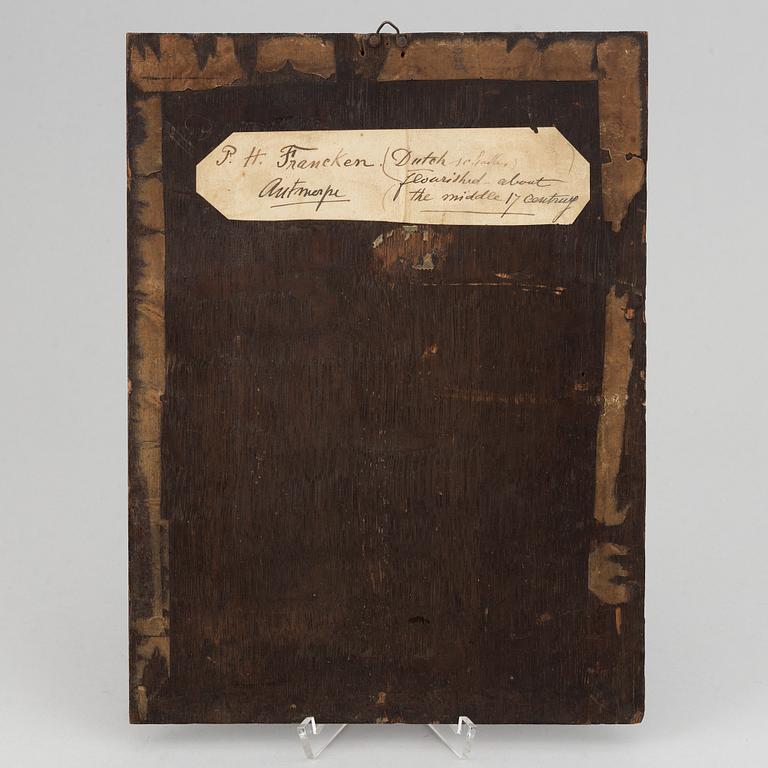 P. H. Francken.
Antwerpe
(Dutch
flourished about
the middle 17 century)